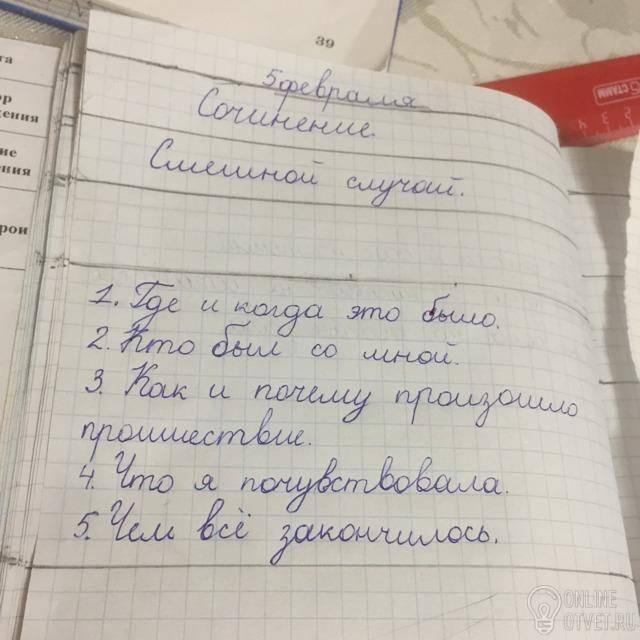 39
та
ор
жения
ние
ения
рои
СТАММ
2 3 4
5 февраля
Сочинение.
Смешной случай.
1. Где и когда это было.
2. Кто был со мной.
3. Как и почему произошло
проишествие.
4. Что я почувствовала.
5. Чем всё закончилось.
ONLINE
OTVET.RU